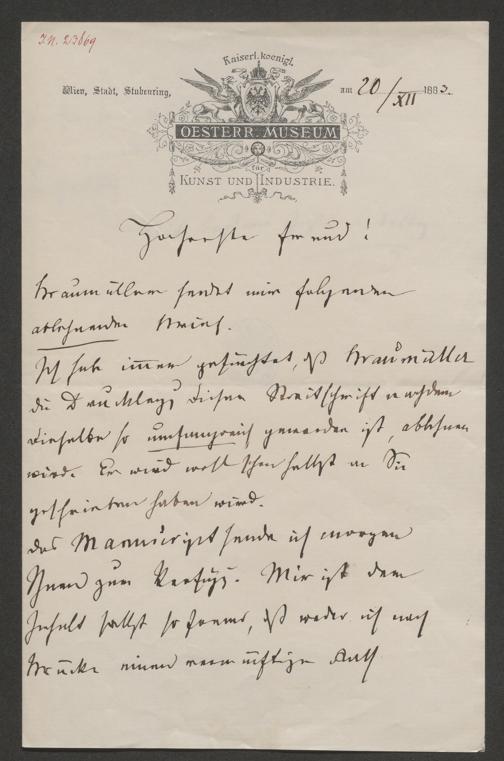 I.N. 23869
Kaiserl. koenigl.
Wien, Stadt, Stubenring,
am 20/XII 1883.
OESTERR. MUSEUM
für
KUNST UND INDUSTRIE.
Hochgeehrter Freund!
Braumüller sendet mir folgenden
ablehnenden Brief.
Ich habe immer gefürchtet, daß Braumüller
die Drucklegg dieser Streitschrift nachdem
dieselbe so umfangreich geworden ist, ablehnen
wird. Er wird wohl schon selbst an Sie
geschrieben haben
Das Manuscript sende ich morgen
Ihnen zur Verfügg. Mir ist dem
Inhalt selbst so fremd, daß weder ich noch
Brücke einen vernünftigen Rath